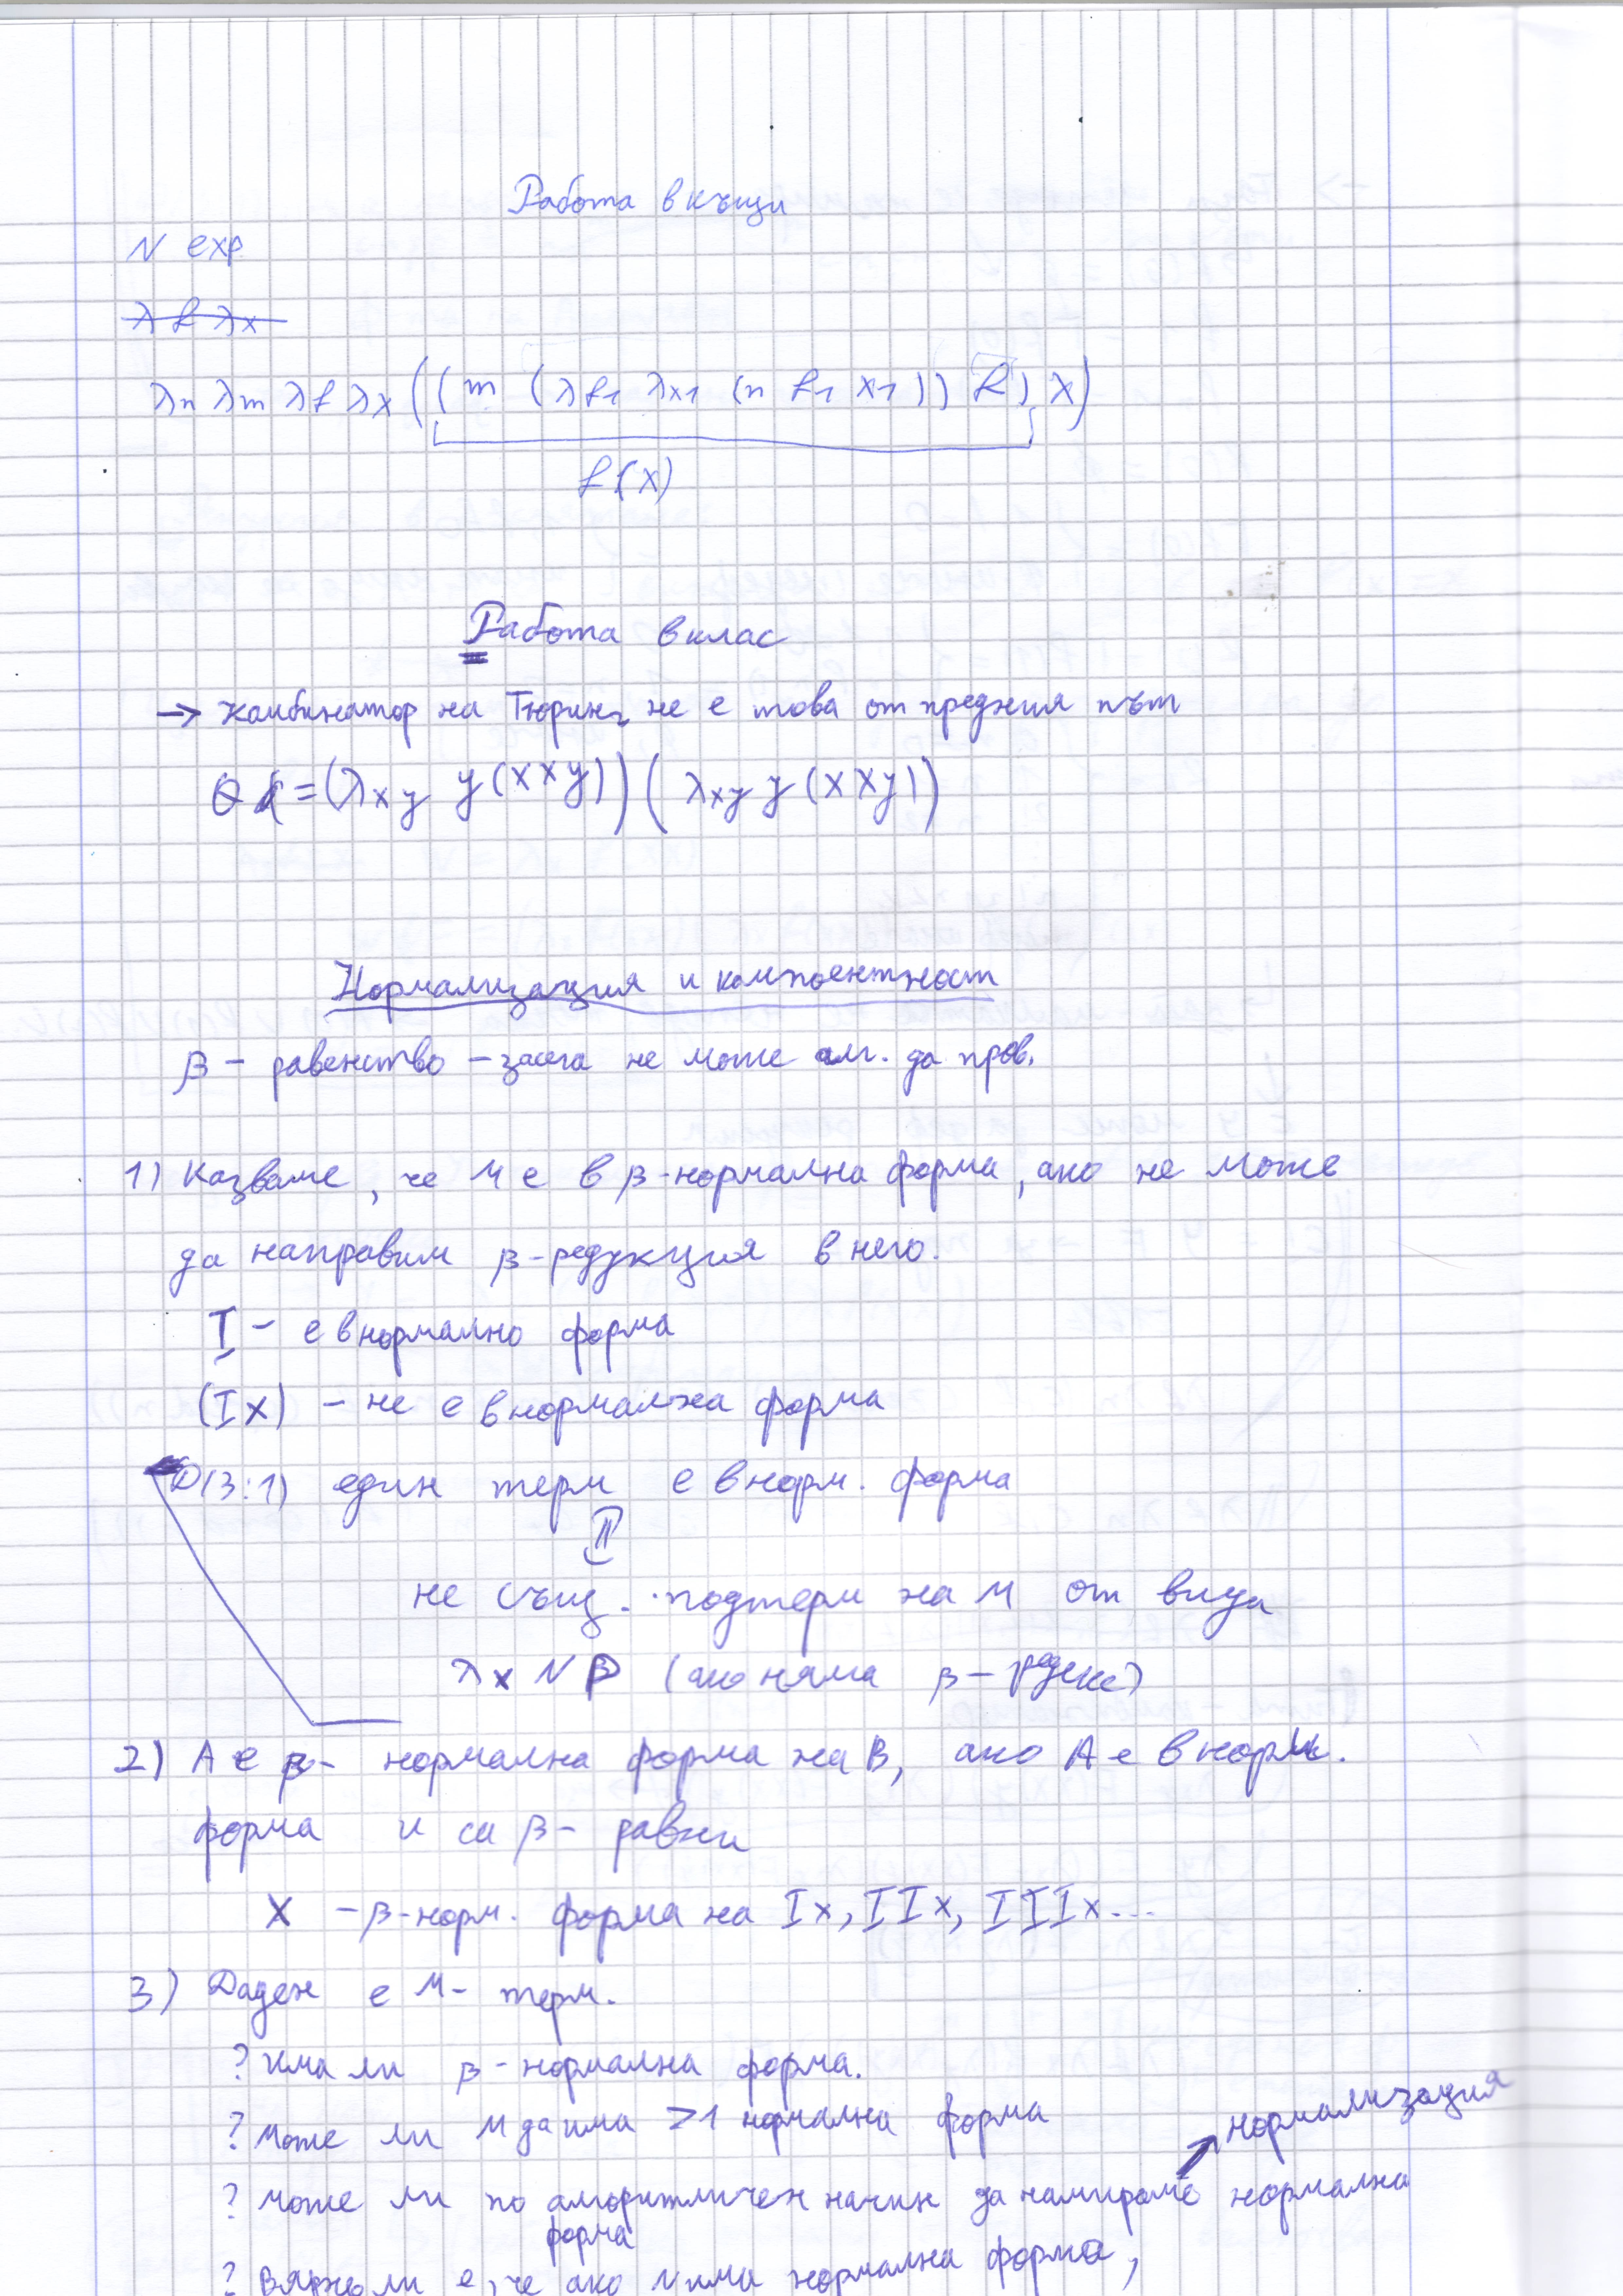 Работа вкъщи
N exp
λf λx
λn λm λf λx ((m (λf1 λx1 (n f1 x1)) f) x)
f(x)
Работа в клас
→ комбинатор на Тюринг не е това от предния път
Θ = (λxy y(xxy)) (λxy y(xxy))
Нормализация и
β - равенство - засега не може алг. да пров.
1) Казваме, че M е в β-нормална форма, ако не може
да направим β-редукция в него.
I - е в нормално форма
(Ix) - не е в нормална форма
(3:1) един терм е в норм. форма
не същ. подтерм на M от вида
λx N P (ако няма β - редекс)
2) A е β- нормална форма на B, ако A е в норм.
форма и са β- равни
X - β-норм. форма на Ix, IIx, IIIx...
3) Даден е M- терм.
? Има ли β-нормална форма.
? Може ли M да има >1 нормална форма
нормализация
? може ли по алгоритмичен начин да намираме нормална
форма
? Вярно ли е, че ако N има нормална форма,